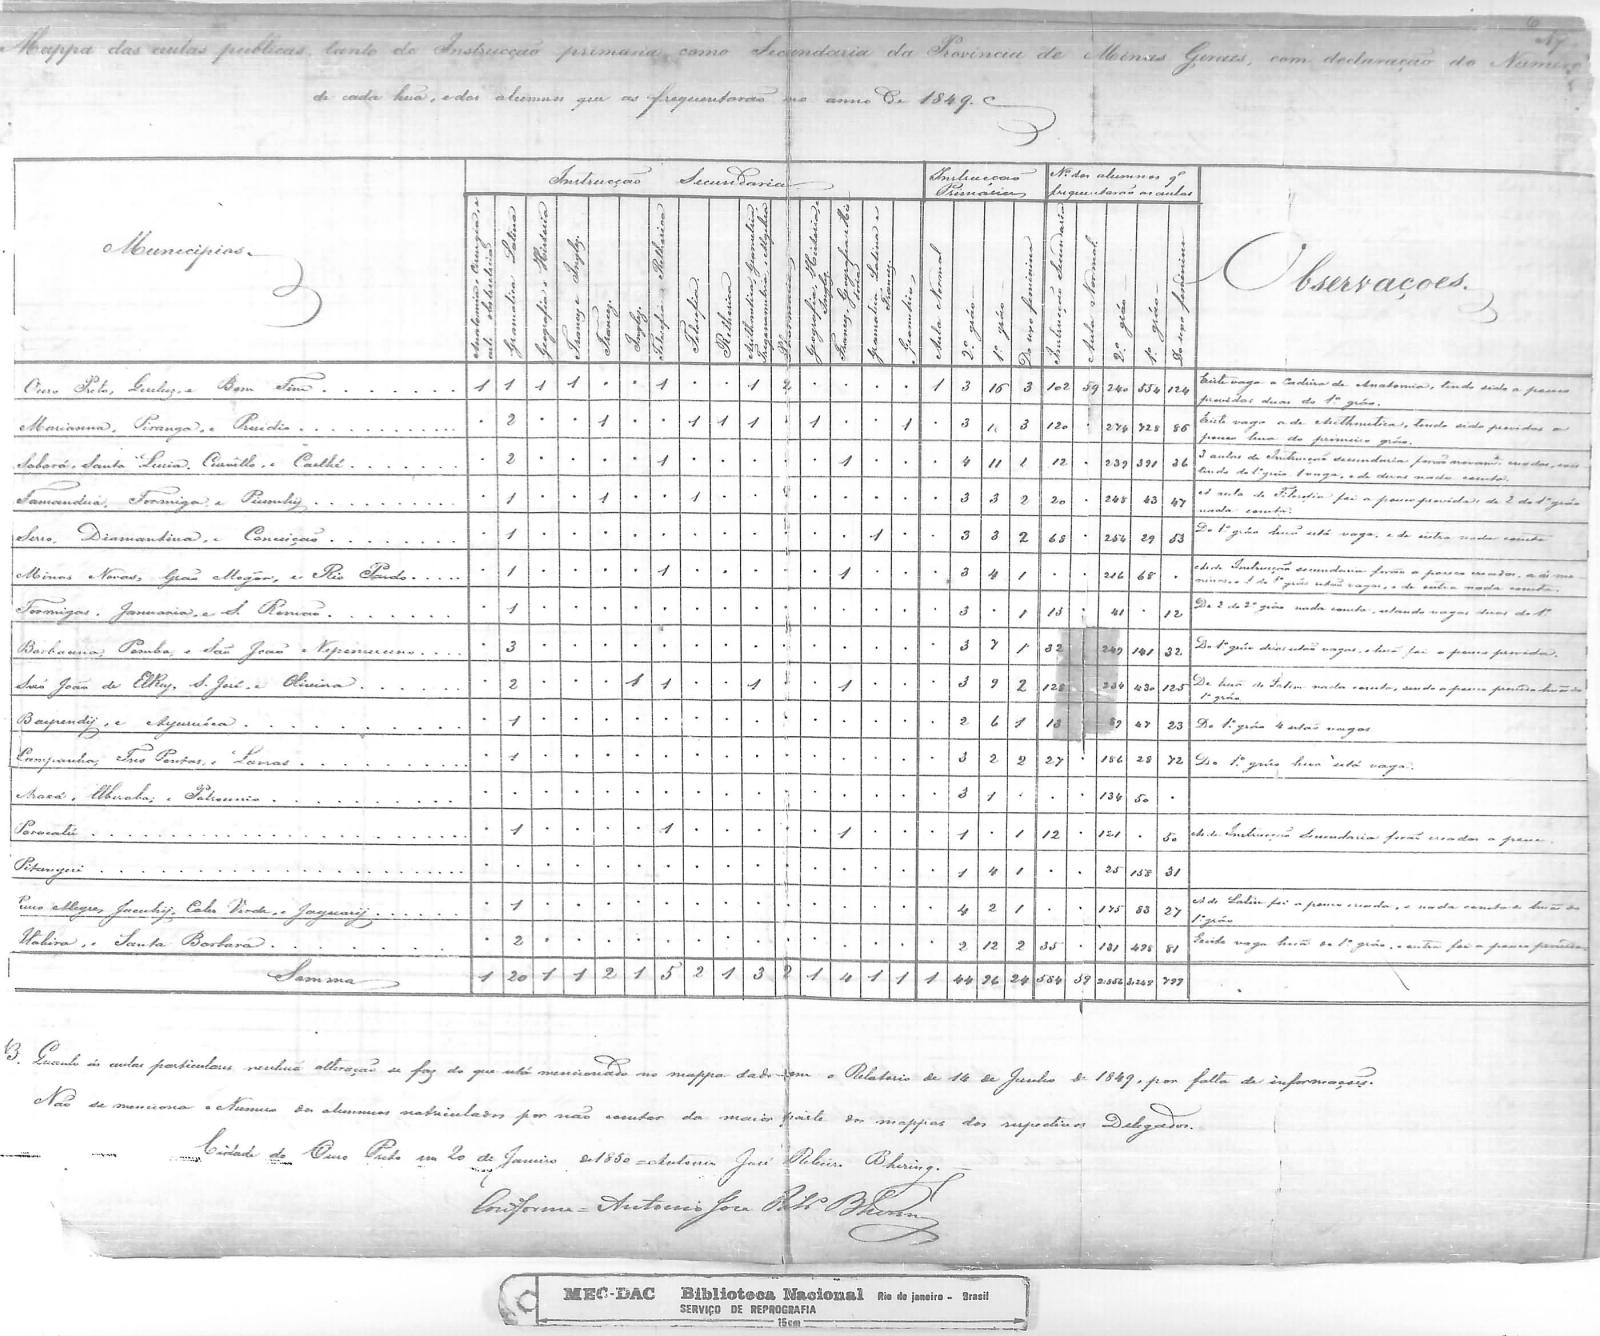 Mappa das aulas publicas, tanto de Instrucção primaria, como Secundaria da Provincia de Minas Geraes, com declaração do Numero
de cada huã, e dos alumnos que as frequentarão no anno de 1849.
Municipios.
Instrucção Secundaria
Instrucção Primaria
Nº dos alumnos q' frequentarão as aulas
Observaçoes.
Gramatica Latina
Geografia e Historia
Francez e Inglez
Francez
Inglez
Filosofia e Rethorica
Filosofia
Rethorica
Pharmacia
Geografia, Historia e Inglez
Gramatica Latina e Francez
Aula Normal
2º gráo
1º gráo
Do sexo feminino
Instrucção Secundaria
Aula Normal
2º gráo
1º gráo
Do sexo feminino
Ouro Preto, Queluz, e Bom Fim 1 1 1 1 · · 1 · · 1 2 · · · · 1 3 16 3 102 59 240 554 124 Existe vaga a Cadeira de Anatomia, tendo sido a pouco providas duas do 1º gráo.
Marianna, Piranga, e Presidio · 2 · · 1 · · 1 1 1 · 1 · · 1 · 3 3 120 · 274 728 86 Existe vaga a de Arithmetica, tendo sido providas a pouco huã do primeiro gráo.
Sabará, Santa Luzia, Curvello, e Caethé · 2 · · · · 1 · · · · · 1 · · · 4 11 1 12 · 239 391 36 3 aulas de Instrucção secundaria forão creadas, do 1º gráo 1 vaga, e de duas nada consta.
Tamanduá, Formiga e Piumhy · 1 · · 1 · · 1 · · · · · · · · 3 3 2 20 · 248 43 47 A aula de Filosofia foi a pouco provida; de 2 do 1º gráo nada consta.
Serro, Diamantina, e Conceição · 1 · · · · · · · · · · · 1 · · 3 3 2 68 · 254 29 53 Do 1º gráo huã está vaga, e de outra nada consta
Minas Novas, Grão Mogor, e Rio Pardo · 1 · · · · 1 · · · · · 1 · · · 3 4 1 · · 216 68 · As de Instrucção secundaria forão a pouco creadas, e 1 do 1º gráo estão vagas, e de outra nada consta.
Formigas, Januaria, e S. Romão · 1 · · · · · · · · · · · · · · 3 · 1 13 · 41 · 12 De 2 do 2º gráo nada consta, estando vagas duas do 1º
Barbacena, Pomba, e São João Nepomuceno · 3 · · · · · · · · · · · · · · 3 7 1 32 249 141 32 Do 1º gráo duas estão vagas, e huã foi a pouco provida.
São João de ElRey, S. José, e Oliveira · 2 · · · 1 1 · · 1 · · 1 · · · 3 9 2 128 234 430 125 De huã de Latim nada consta, sendo a pouco provida huã do 1º gráo
Baependy, e Ayuruóca · 1 · · · · · · · · · · · · · · 2 6 1 13 89 47 23 Do 1º gráo 4 estão vagas
Campanha, Tres Pontas, e Lavras · 1 · · · · · · · · · · · · · · 3 2 2 27 · 186 28 72 Do 1º gráo huã está vaga.
Araxá, Uberaba, e Patrocinio · · · · · · · · · · · · · · · · 3 1 · · · 134 50 ·
Paracatú · 1 · · · · 1 · · · · · 1 · · · 1 · 1 12 · 121 · 50 As de Instrucção Secundaria forão creadas a pouco.
Pitangui · · · · · · · · · · · · · · · · 1 4 1 · · 25 158 31
Pouso Alegre, Jacuhy, Caldas, e Jaguary · 1 · · · · · · · · · · · · · · 4 2 1 · · 175 83 27 A de Latim foi a pouco creada, e nada consta de huã do 1º gráo
Itabira, e Santa Barbara · 2 · · · · · · · · · · · · · · 2 12 2 35 · 131 498 81 Existe vaga huã do 1º gráo, e outra foi a pouco provida
Somma 1 20 1 1 2 1 5 2 1 3 2 1 4 1 1 1 44 96 24 584 59 2:656 3:248 799
B. Quanto ás aulas particulares nenhuã alteração se faz do que está mencionado no mappa dado em o Relatorio de 14 de Junho de 1849, por falta de informações.
Não se menciona o Numero dos alumnos matriculados por não constar da maior parte dos mappas dos respectivos Delegados.
Cidade do Ouro Preto em 20 de Janeiro de 1850 = Antonio José Ribeiro Bhering.
Conforme = Antonio Jose Ribrº Bhering
MEC-DAC Biblioteca Nacional Rio de janeiro - Brasil
SERVIÇO DE REPROGRAFIA
15cm